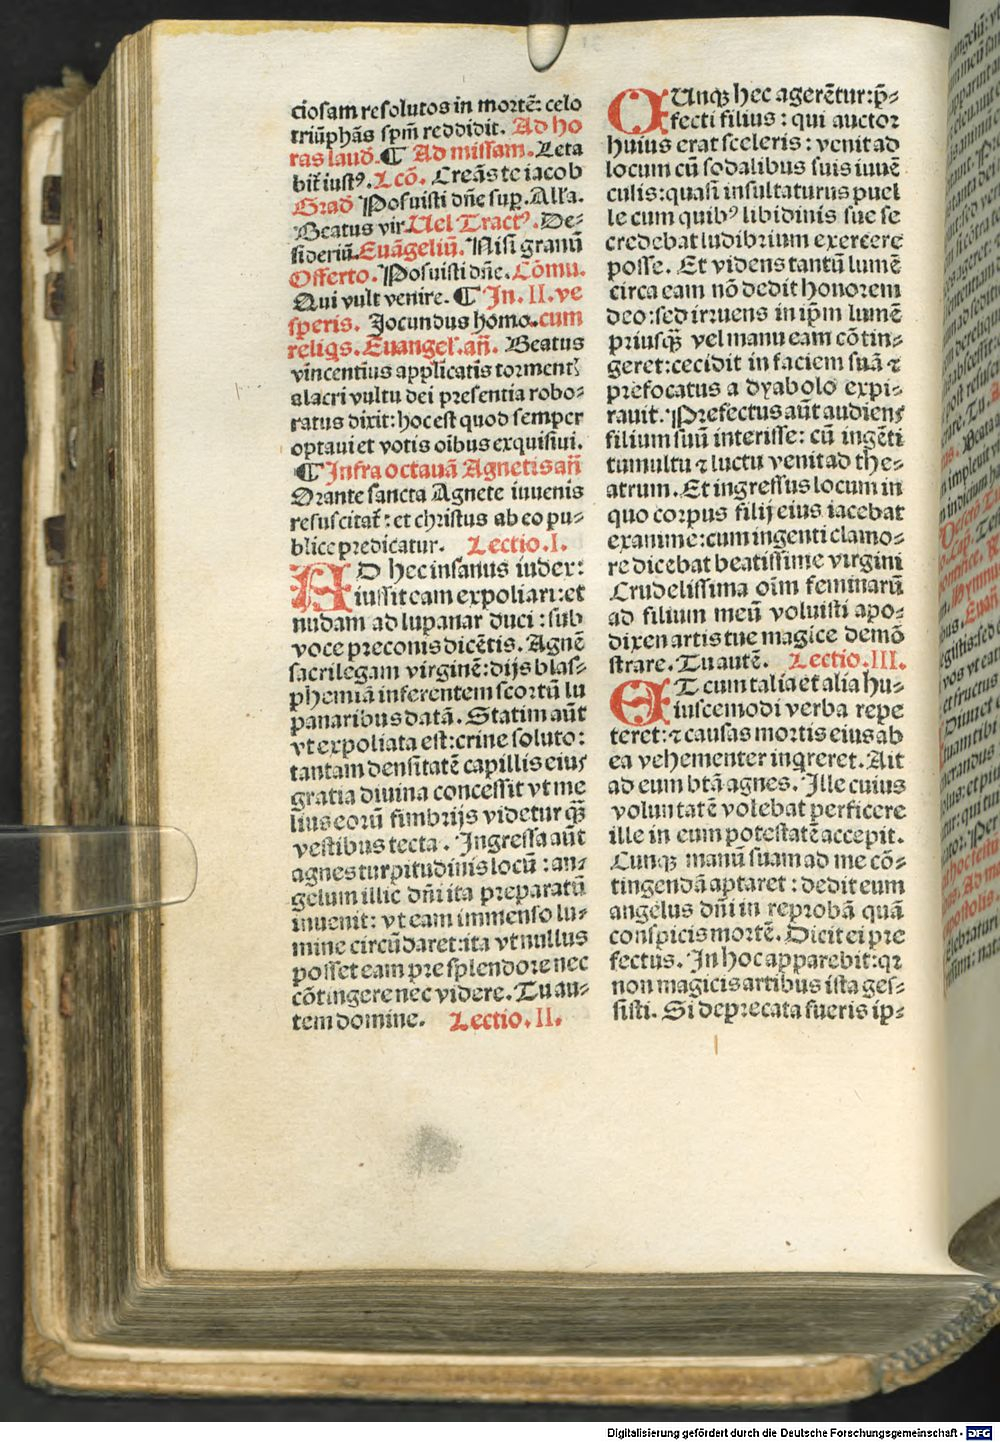 ciosam resolutos in mortē: celo
triūphās spm̄ reddidit. Ad ho
ras laud̄. ¶ Ad missam. Leta
bit̄ iustꝰ. Lcō. Creās te iacob
Grad̄ Posuisti dn̄e sup̲. All'a.
Beatus vir. Uel Tractꝰ. De⸗
sideriū. Euāgeliū. Nisi granū
Offerto. Posuisti dn̄e. Cōmu.
Qui vult venire. ¶ In. II. ve
speris. Jocundus homo. cum
reliqs. Euangel'. an̄. Beatus
vincentius applicatis torment
alacri vultu dei presentia robo⸗
ratus dixit: hoc est quod semper
optaui et votis oībus exquisiui.
¶ Infra octauā Agnetis an̄
Orante sancta Agnete iuuenis
resuscitat̄: et christus ab eo pu⸗
blice predicatur. Lectio. I.
AD hec insanus iudex:
iussit eam expoliari: et
nudam ad lupanar duci: sub
voce preconis dicētis. Agnē
sacrilegam virginē: dijs blas⸗
phemiā inferentem scortū lu
panaribus datā. Statim aūt
vt expoliata est: crine soluto:
tantam densitatē capillis eius
gratia diuina concessit vt me
lius eorū fimbrijs videtur qꝫ̄
vestibus tecta. Ingressa aūt
agnes turpitudinis locū: an⸗
gelum illic dn̄i ita preparatū
inuenit: vt eam immenso lu⸗
mine circūdaret: ita vt nullus
posset eam pre splendore nec
cōtingere nec videre. Tu au⸗
tem domine. Lectio. II.
CUnqꝫ hec agerētur: p̄⸗
fecti filius: qui auctor
huius erat sceleris: venit ad
locum cū sodalibus suis iuuē
culis: quasi insultaturus puel
le cum quibꝰ libidinis sue se
credebat ludibrium exercere
posse. Et videns tantū lumē
circa eam nō dedit honorem
deo: sed irruens in ip̄m lumē
priusqꝫ̄ vel manu eam cōtin⸗
geret: cecidit in faciem suā ⁊
prefocatus a dyabolo expi⸗
rauit. Prefectus aūt audiens
filium suū interisse: cū ingēti
tumultu ⁊ luctu venit ad the⸗
atrum. Et ingressus locum in
quo corpus filij eius iacebat
exanime: cum ingenti clamo⸗
re dicebat beatissime virgini
Crudelissima oīm feminarū
ad filium meū voluisti apo⸗
dixen artis tue magice demō
strare. Tu autē. Lectio. III.
ET cum talia et alia hu⸗
iuscemodi verba repe
teret: ⁊ causas mortis eius ab
ea vehementer inqreret. Ait
ad eum btā agnes. Ille cuius
voluntatē volebat perficere
ille in eum potestatē accepit.
Cunqꝫ manū suam ad me cō⸗
tingendā aptaret: dedit eum
angelus dn̄i in reprobā quā
conspicis mortē. Dicit ei pre
fectus. In hoc apparebit: qꝛ
non magicis artibus ista ges⸗
sisti. Si deprecata fueris ip⸗
Digitalisierung gefördert durch die Deutsche Forschungsgemeinschaft - DFG